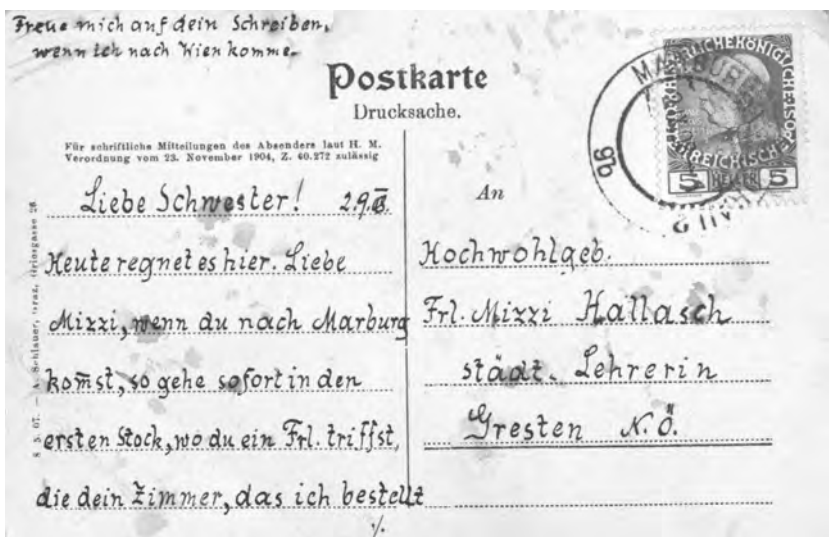 Freue mich auf dein Schreiben,
wenn ich nach Wien komme.
Postkarte
Drucksache.
Für schriftliche Mitteilungen des Absenders laut H. M.
Verordnung vom 23. November 1904, Z. 40.272 zulässig
Liebe Schwester! 2.9.
Heute regnet es hier. Liebe
Mizzi, wenn du nach Marburg
kom̄st, so gehe sofort in den
ersten Stock, wo du ein Frl. triffst,
die dein Zimmer, das ich bestellt
./.
An
Hochwohlgeb.
Frl. Mizzi Hallasch
städt. Lehrerin
Gresten N.Ö.
5 HELLER 5
A. Schlauer, Graz,